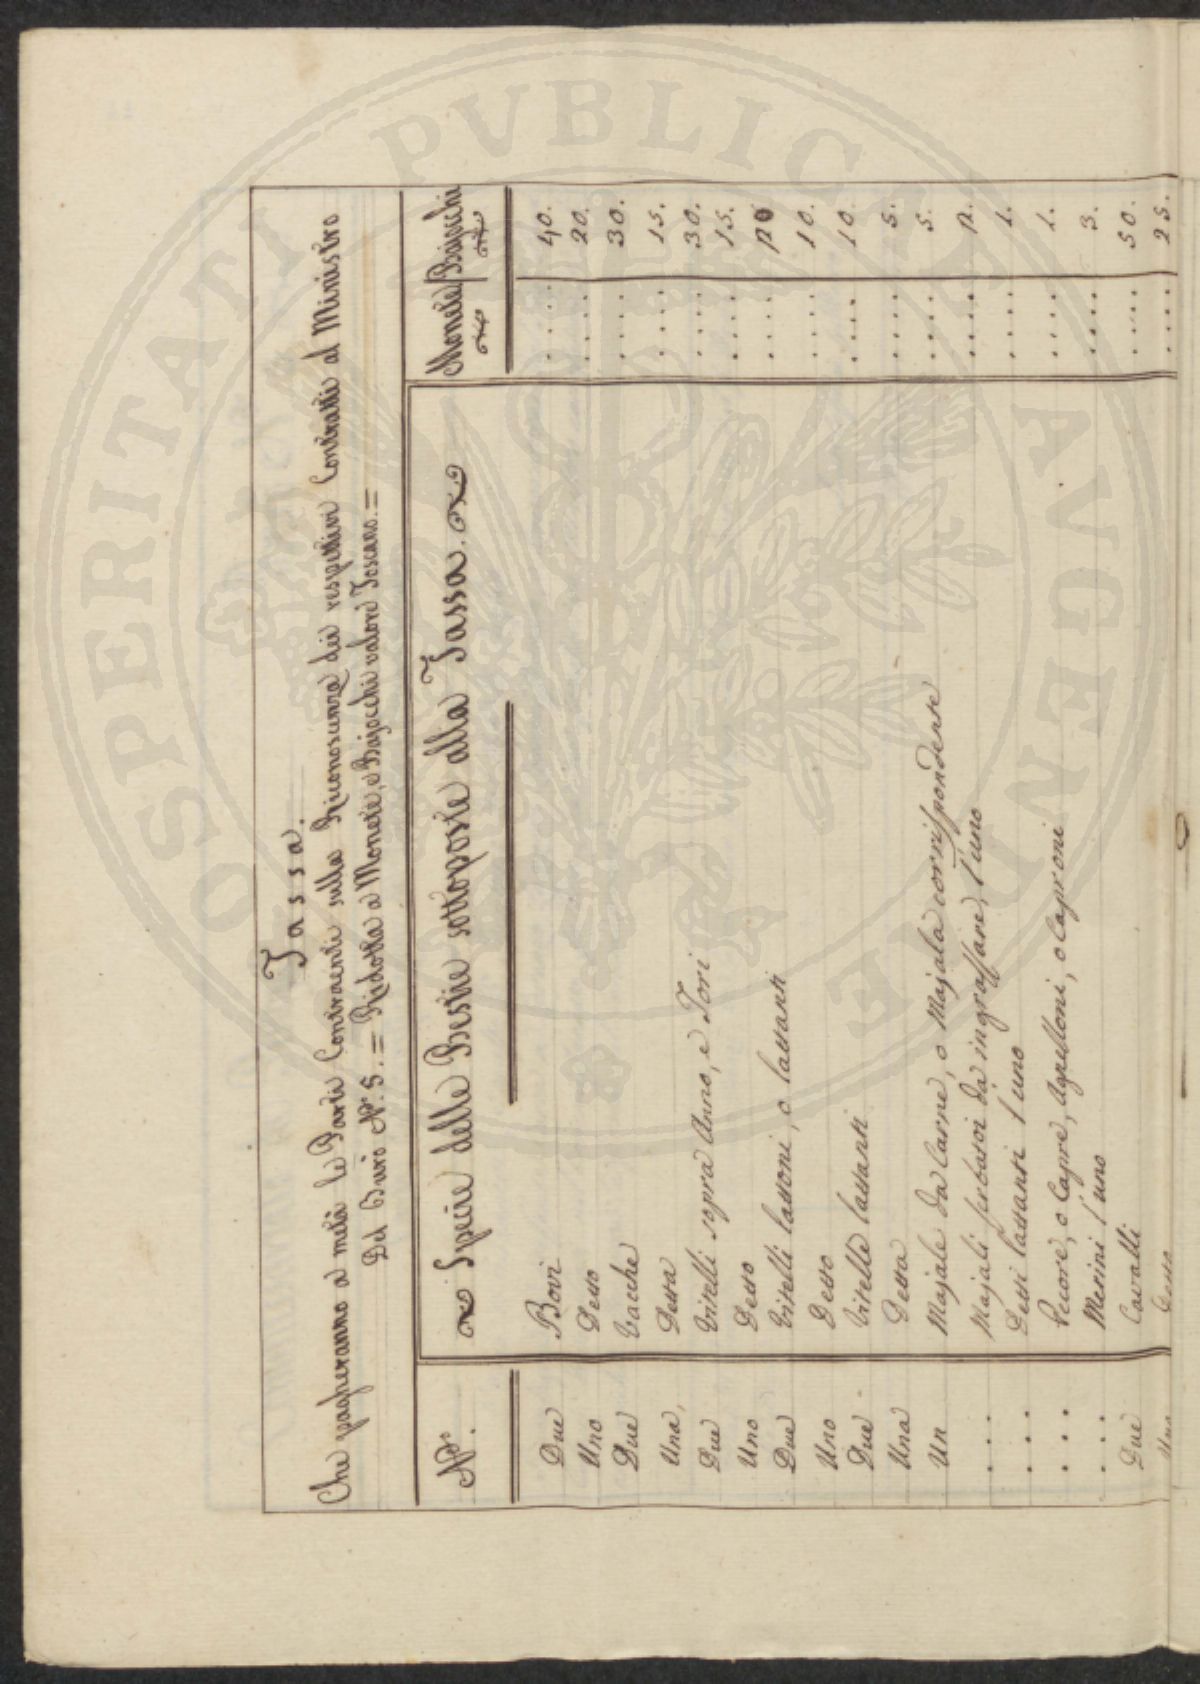 Tassa.
Che pagheranno a metà le Parti Contraenti sulla Riconoscenza dei respettivi Contratti al Ministro
Del Burò N.º 5. = Ridotta a Monete, e Bajocchi valore Toscano. =
N.º Specie delle Bestie sottoposte alla Tassa. Monete Bajocchi
Due Bovi .... 40.
Uno Detto .... 20.
Due Vacche .... 30.
Una Detta .... 15.
Due Vitelli sopra Anno, e Tori .... 30.
Uno Detto .... 15.
Due Vitelli lattoni, o lattanti ....
Uno Detto .... 10.
Due Vitelle lattanti .... 10.
Una Detta .... 5.
Un Majale da Carne, o Majala corrispondente .... 5.
.... Majali da ingrassare, l'uno .... 2.
.... Detti lattanti l'uno .... 1.
.... Pecore, o Capre, Agnelloni, o Caproni .... 1.
.... Merini l'uno .... 3.
Due Cavalli .... 50.
Uno Detto .... 25.
PROSPERITATI PVBLICAE AVGENDAE